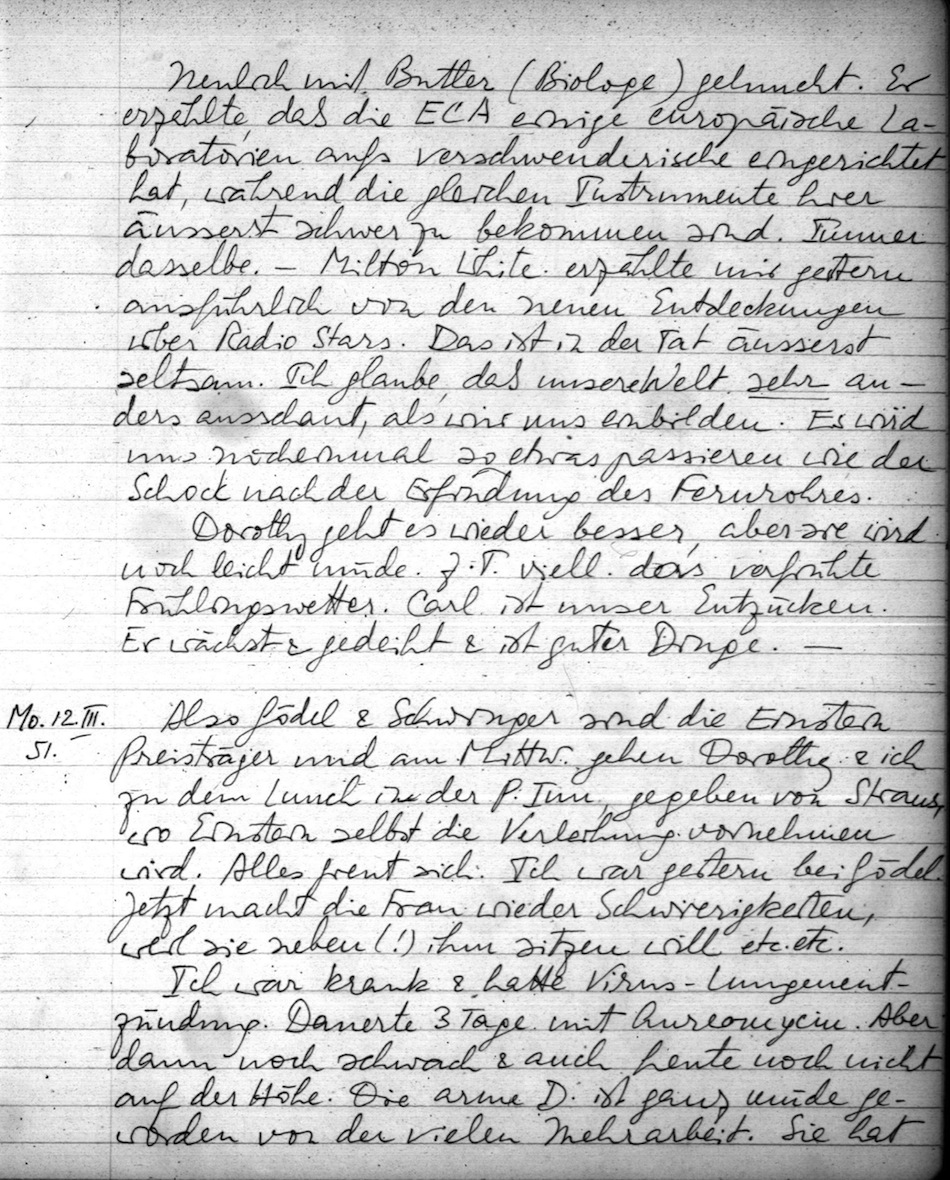 Neulich mit Buttler (Biologe) geluncht. Er
erzählte, daß die ECA einige europäische La-
boratorien aufs verschwenderische eingerichtet
hat, während die gleichen Instrumente hier
äusserst schwer zu bekommen sind. Immer
dasselbe. – Milton White erzählte mir gestern
ausführlich von den neuen Entdeckungen
über Radio Stars. Das ist in der Tat äusserst
seltsam. Ich glaube, daß unsere Welt sehr an-
ders ausschaut, als wir uns einbilden. Es wird
uns nocheinmal so etwas passieren wie der
Schock nach der Erfindung des Fernrohres.
Dorothy geht es wieder besser, aber sie wird
noch leicht müde. Z.T. viell. das verfrühte
Frühlingswetter. Carl ist unser Entzücken.
Er wächst & gedeiht & ist guter Dinge. —
Mo. 12.III.
51.
Also Gödel & Schwinger sind die Einstein
Preisträger und am Mittw. gehen Dorothy & ich
zu dem Lunch in der P. Inn, gegeben von Straus,
wo Einstein selbst die Verleihung vornehmen
wird. Alles freut sich. Ich war gestern bei Gödel.
Jetzt macht die Frau wieder Schwierigkeiten,
weil sie neben (!) ihm sitzen will etc. etc.
Ich war krank & hatte Virus-Lungenent-
zündung. Dauerte 3 Tage mit Aureomycin. Aber
dann noch schwach & auch heute noch nicht
auf der Höhe. Die arme D. ist ganz müde ge-
worden von der vielen Mehrarbeit. Sie hat